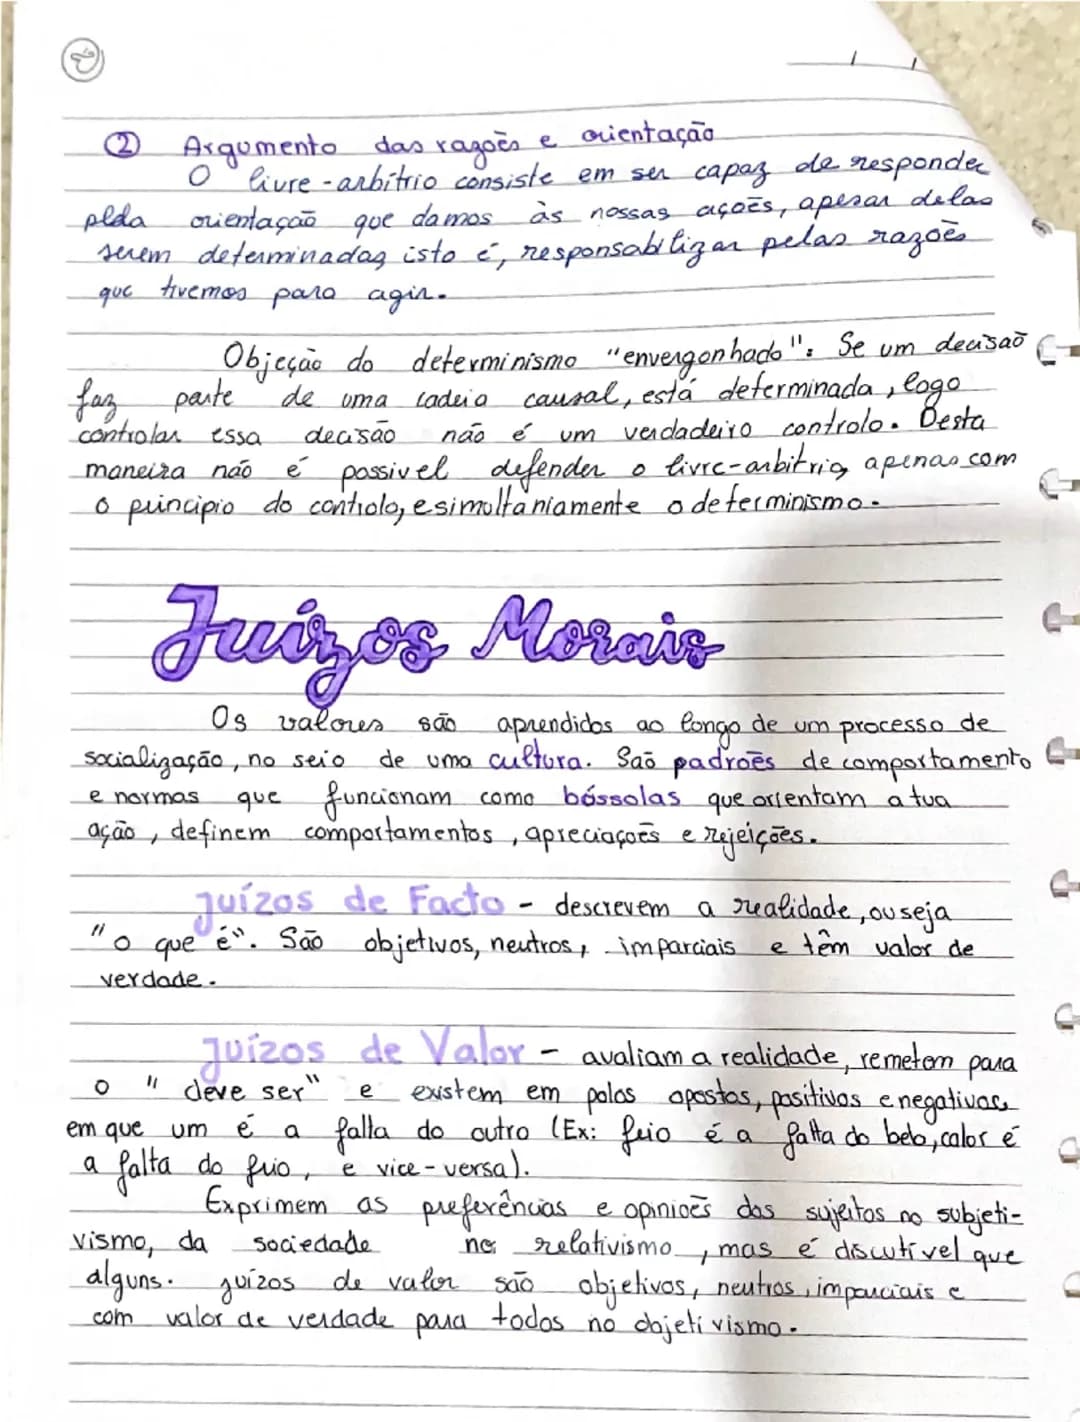 ② Argumento das razoẽs e orientação
O livre-arbítrio consiste em ser capaz de responder
plda orientação que damos às nossas açoẽs, apesar delas
serem determinadas isto é, responsabilizar pelas razoẽs
que tivemos para agir.
Objeção do determinismo "envergonhado": Se um decisaõ
faz parte de uma cadeia causal, está determinada, logo
controlar essa decisão não é um verdadeiro controlo. Desta
maneira não é possivel defender o livre-arbitrio, apenas com
o principio do controlo, e simultaniamente o determinismo.
Juízos Morais
Os valores são aprendidos ao longo de um processo de
socialização, no seio de uma cultura. Saõ padroẽs de comportamento
e normas que funcionam como bóssolas que orientam a tua
ação, definem comportamentos, apreciaçoẽs e rejeições.
Juízos de Facto - descrevem a realidade, ou seja
"o que é". São objetivos, neutros, imparciais e têm valor de
verdade.
Juízos de Valor - avaliam a realidade, remetem para
o "deve ser" e existem em polos opostos, positivos e negativos,
em que um é a falla do outro (Ex: feio é a falta do belo, calor é
a falta do frio, e vice-versa).
Exprimem as preferências e opinioẽs dos sujeitos no subjeti-
vismo, da sociedade no relativismo, mas é discutível que
alguns. juízos de valor são objetivos, neutros, imparciais e
com valor de verdade para todos no objetivismo.